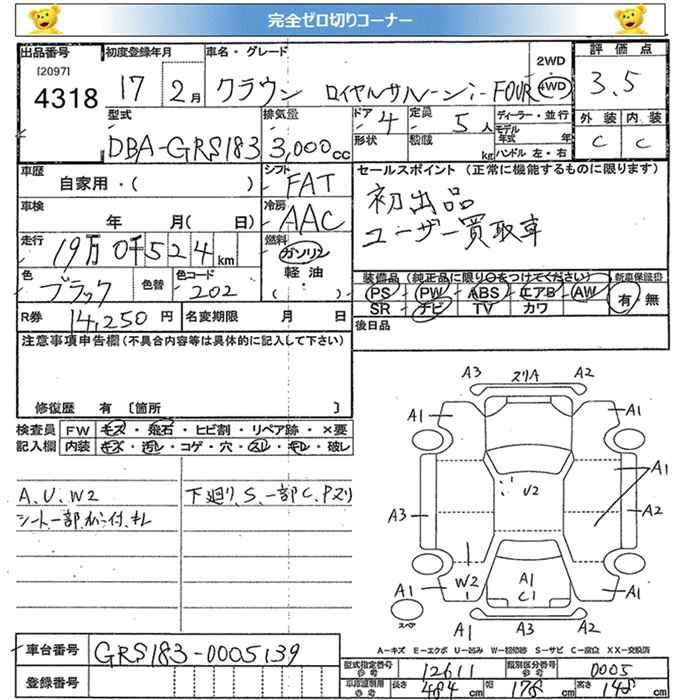 完全ゼロ切りコーナー
出品番号 初度登録年月 車名・グレード 2WD 評価点
[2097]
4318 17 2月 クラウン ロイヤルサルーンi-FOUR 4WD 3.5
型式 排気量 ドア 4 定員 5人 ディーラー・並行 外装 内装
DBA-GRS183 3,000cc 形状 積載 kg モデル年式 年 C C
ハンドル 左・右
車歴 シフト セールスポイント(正常に機能するものに限ります)
自家用・( ) FAT 初出品
車検 冷房 ユーザー買取車
年 月( 日) AAC
走行 燃料
19万0千524km ガソリン
色 色替 色コード 軽油
ブラック 202 ( ・ )
装備品(純正品に限り○をつけてください) 新車保証書
PS PW ABS エアB AW 有・無
SR ナビ TV カワ
R券 14,250円 名変期限 月 日 後日品
注意事項申告欄(不具合内容等は具体的に記入して下さい)
修復歴 有〔箇所 〕
検査員 FW キズ・飛石・ヒビ割・リペア跡・×要
記入欄 内装 キズ・汚レ・コゲ・穴・スレ・キレ・破レ
A、U、W2 下廻り、S、一部C、Pスリ
A3 スリA A2
A1 A1
U2 A1
A3 A2
W2 A1
A1 C1 A1
スペア A1 A3 A2
A-キズ E-エクボ U-凹み W-補修跡 S-サビ C-腐食 XX-交換済
車台番号 GRS183-0005139
登録番号
型式指定番号 参考 12611 類別区分番号 参考 0005
車両諸元 参考 長さ 484cm 幅 178cm 高さ 148cm